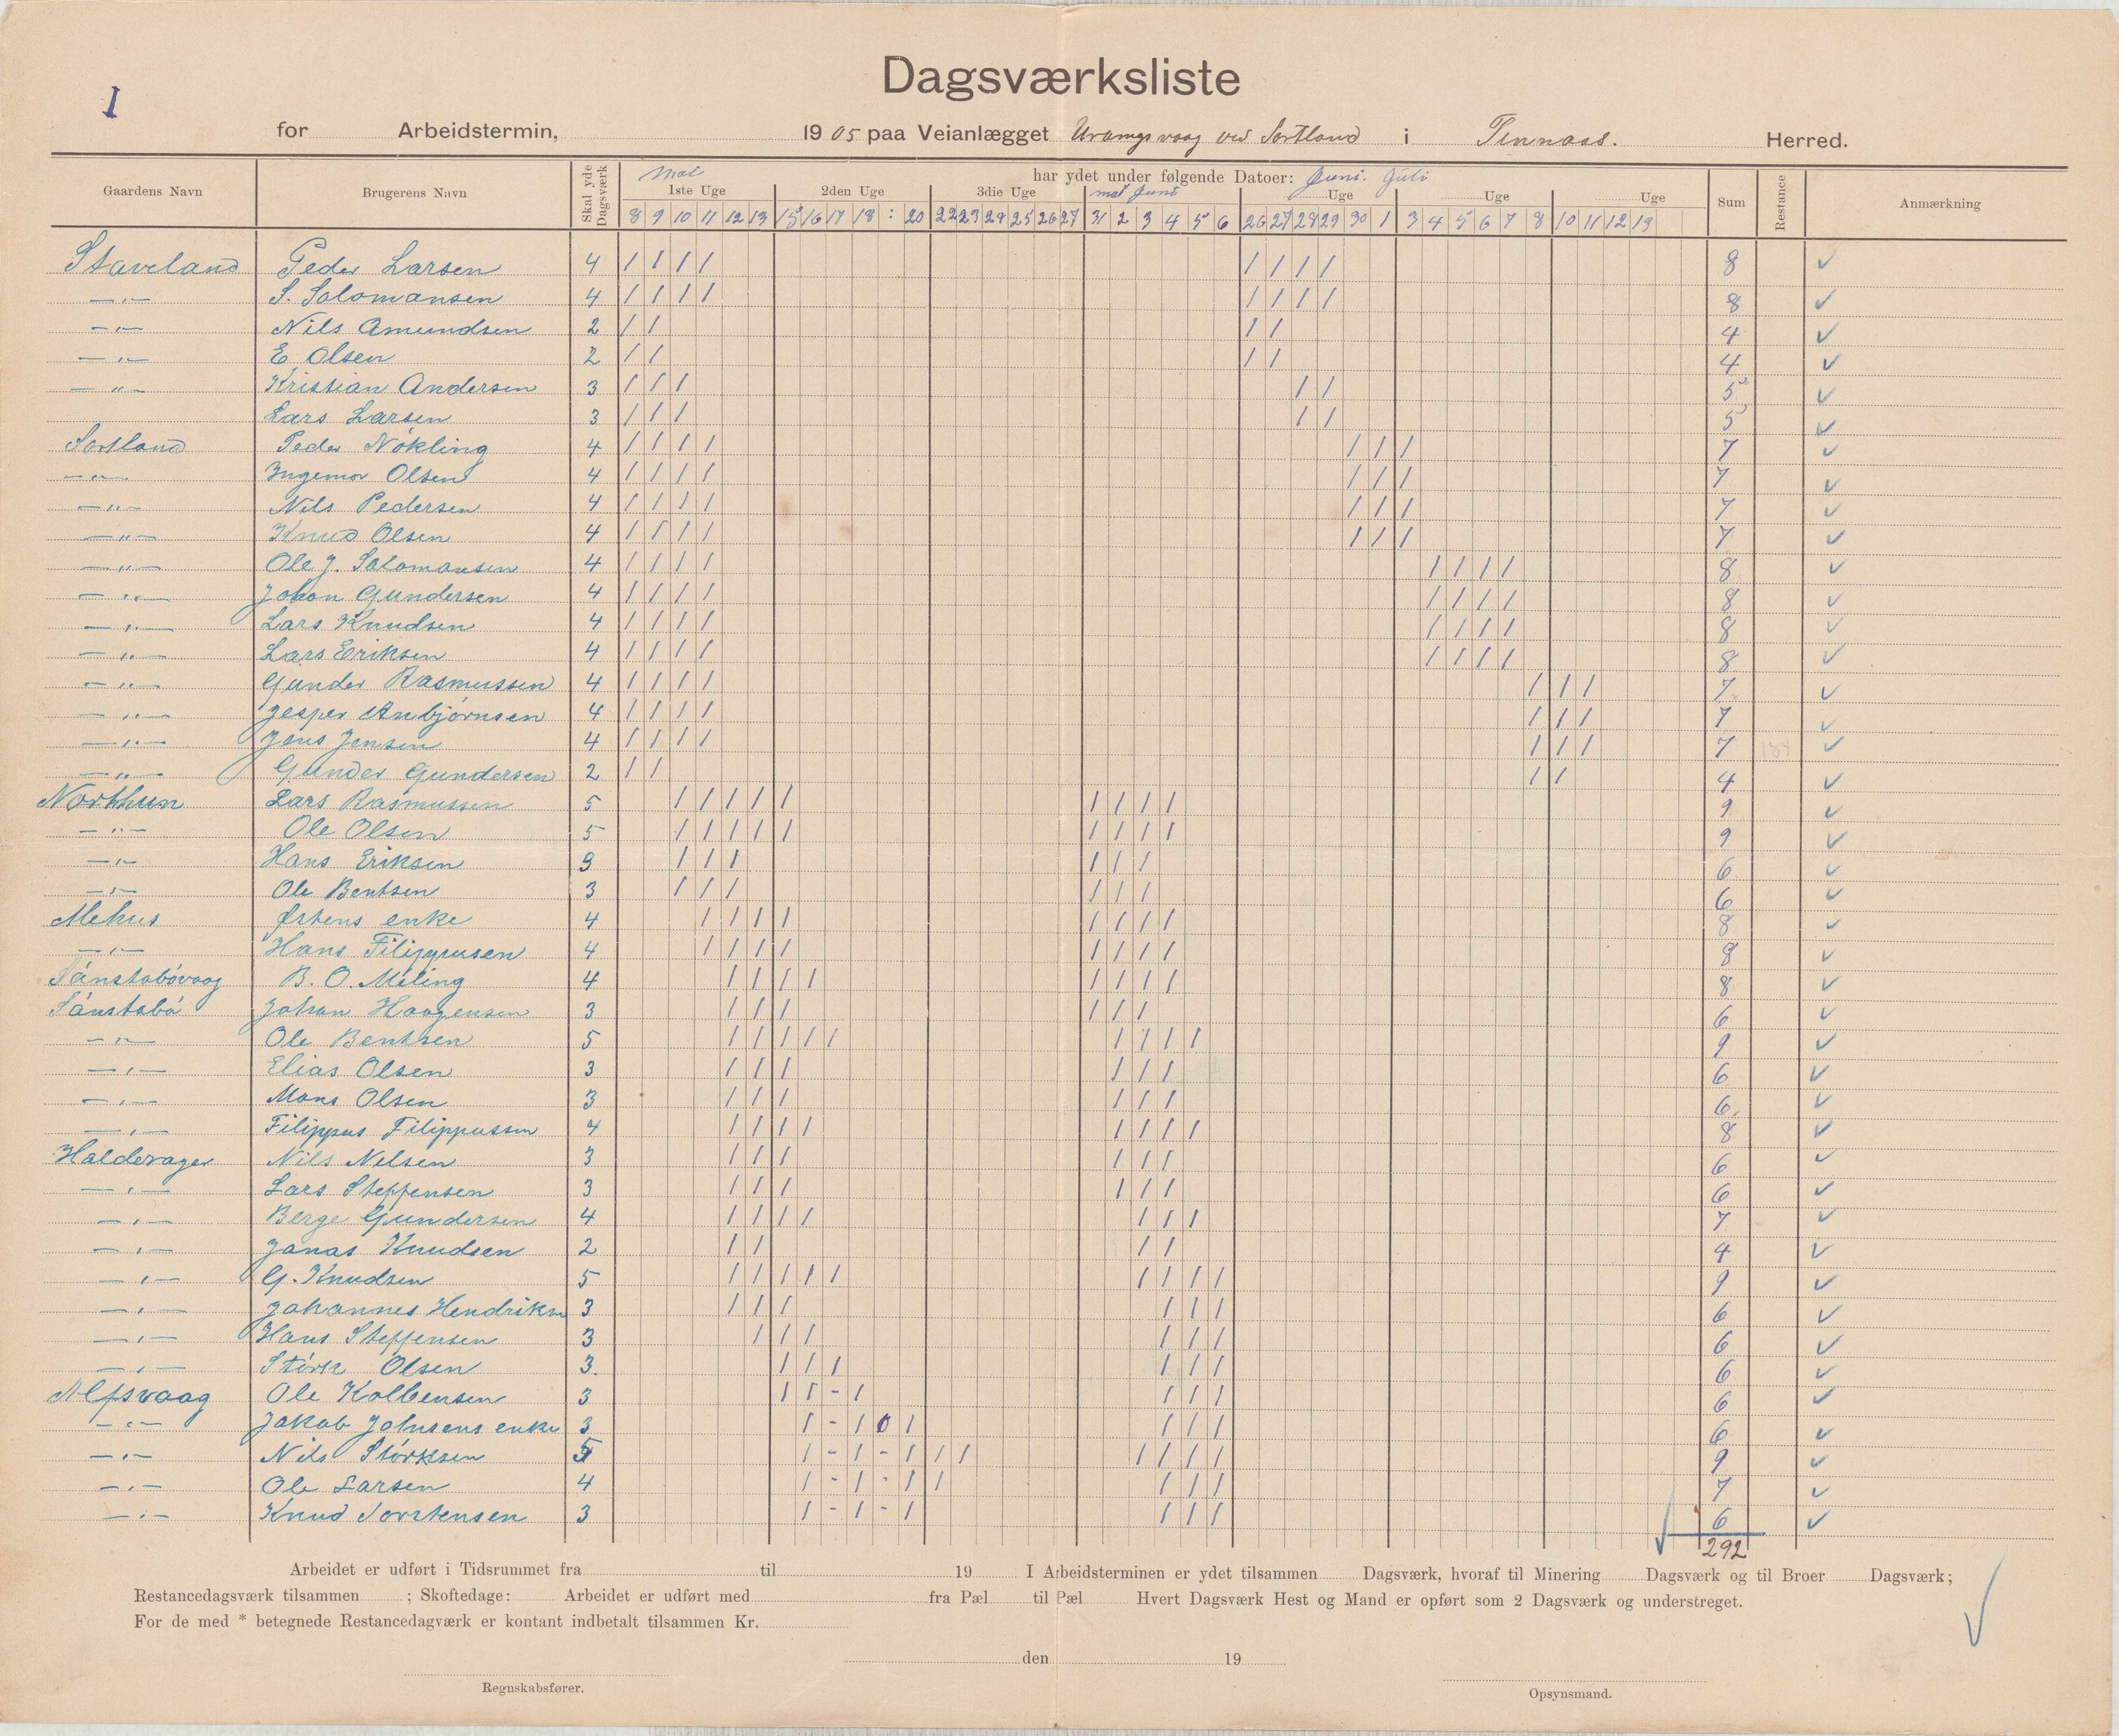 I
Dagsværksliste
for Arbeidstermin, 1905 paa Veianlægget Urangsvaag ved Sortland i Finnaas. Herred.
Gaardens Navn Brugerens Navn Skal yde Dagsværk har ydet under følgende Datoer: Juni. Juli Sum Restance Anmærkning
Mai mai Juni
1ste Uge 2den Uge 3die Uge Uge Uge Uge
8 9 10 11 12 13 15 16 17 18 : 20 22 23 24 25 26 27 31 2 3 4 5 6 26 27 28 29 30 1 3 4 5 6 7 8 10 11 12 13
Staveland Peder Larsen 4 / / / / / / / / 8 ✓
— " — S. Salomansen 4 / / / / / / / / 8 ✓
— " — Nils Amundsen 2 / / / / 4 ✓
— " — E Olsen 2 / / / / 4 ✓
— " — Kristian Andersen 3 / / / / / 5 ✓
Lars Larsen 3 / / / / / 5 ✓
Sortland Peder Nökling 4 / / / / / / / 7 ✓
— " — Ingemor Olsen 4 / / / / / / / 7 ✓
— " — Nils Pedersen 4 / / / / / / / 7 ✓
— " — Knud Olsen 4 / / / / / / / 7 ✓
— " — Ole J. Salomansen 4 / / / / / / / / 8 ✓
— " — Johan Gundersen 4 / / / / / / / / 8 ✓
— " — Lars Knudsen 4 / / / / / / / / 8 ✓
— " — Lars Eriksen 4 / / / / / / / / 8 ✓
— " — Gunder Rasmussen 4 / / / / / / / 7 ✓
— " — Jesper Anbjörnsen 4 / / / / / / / 7 ✓
— " — Jens Jensen 4 / / / / / / / 7 ✓
— " — Gunder Gundersen 2 / / / / 4 ✓
Northun Lars Rasmussen 5 / / / / / / / / / 9 ✓
— " — Ole Olsen 5 / / / / / / / / / 9 ✓
— " — Hans Eriksen 3 / / / / / / 6 ✓
— " — Ole Bentsen 3 / / / / / / 6 ✓
Mehus Østens enke 4 / / / / / / / / 8 ✓
— " — Hans Filippusen 4 / / / / / / / / 8 ✓
Sönstabövaag B. O. Meling 4 / / / / / / / / 8 ✓
Sönstabö Johan Haagensen 3 / / / / / / 6 ✓
— " — Ole Bentsen 5 / / / / / / / / / 9 ✓
— " — Elias Olsen 3 / / / / / / 6 ✓
— " — Mons Olsen 3 / / / / / / 6 ✓
— " — Filippus Filippussen 4 / / / / / / / / 8 ✓
Halderager Nils Nelsen 3 / / / / / / 6 ✓
— " — Lars Steffensen 3 / / / / / / 6 ✓
— " — Berge Gundersen 4 / / / / / / / 7 ✓
— " — Janas Knudsen 2 / / / / 4 ✓
— " — G. Knudsen 5 / / / / / / / / / 9 ✓
— " — Johannes Hendriksn 3 / / / / / / 6 ✓
— " — Hans Steffensen 3 / / / / / / 6 ✓
— " — Störk Olsen 3. / / / / / / 6 ✓
Alfsvaag Ole Kolbensen 3 / / - / / / / 6 ✓
— " — Jakob Johnsens enke 3 / - / 0 / / / / 6 ✓
— " — Nils Störksen 5 / - / - / / / / / / / 9 ✓
— " — Ole Larsen 4 / - / - / / / / / 7 ✓
— " — Knud Torstensen 3 / - / - / / / / 6 ✓
✓ 292
Arbeidet er udført i Tidsrummet fra til 19 I Arbeidsterminen er ydet tilsammen Dagsværk, hvoraf til Minering Dagsværk og til Broer Dagsværk;
Restancedagsværk tilsammen ; Skoftedage: Arbeidet er udført med fra Pæl til Pæl Hvert Dagsværk Hest og Mand er opført som 2 Dagsværk og understreget.
For de med * betegnede Restancedagværk er kontant indbetalt tilsammen Kr.
den 19
Regnskabsfører. Opsynsmand.